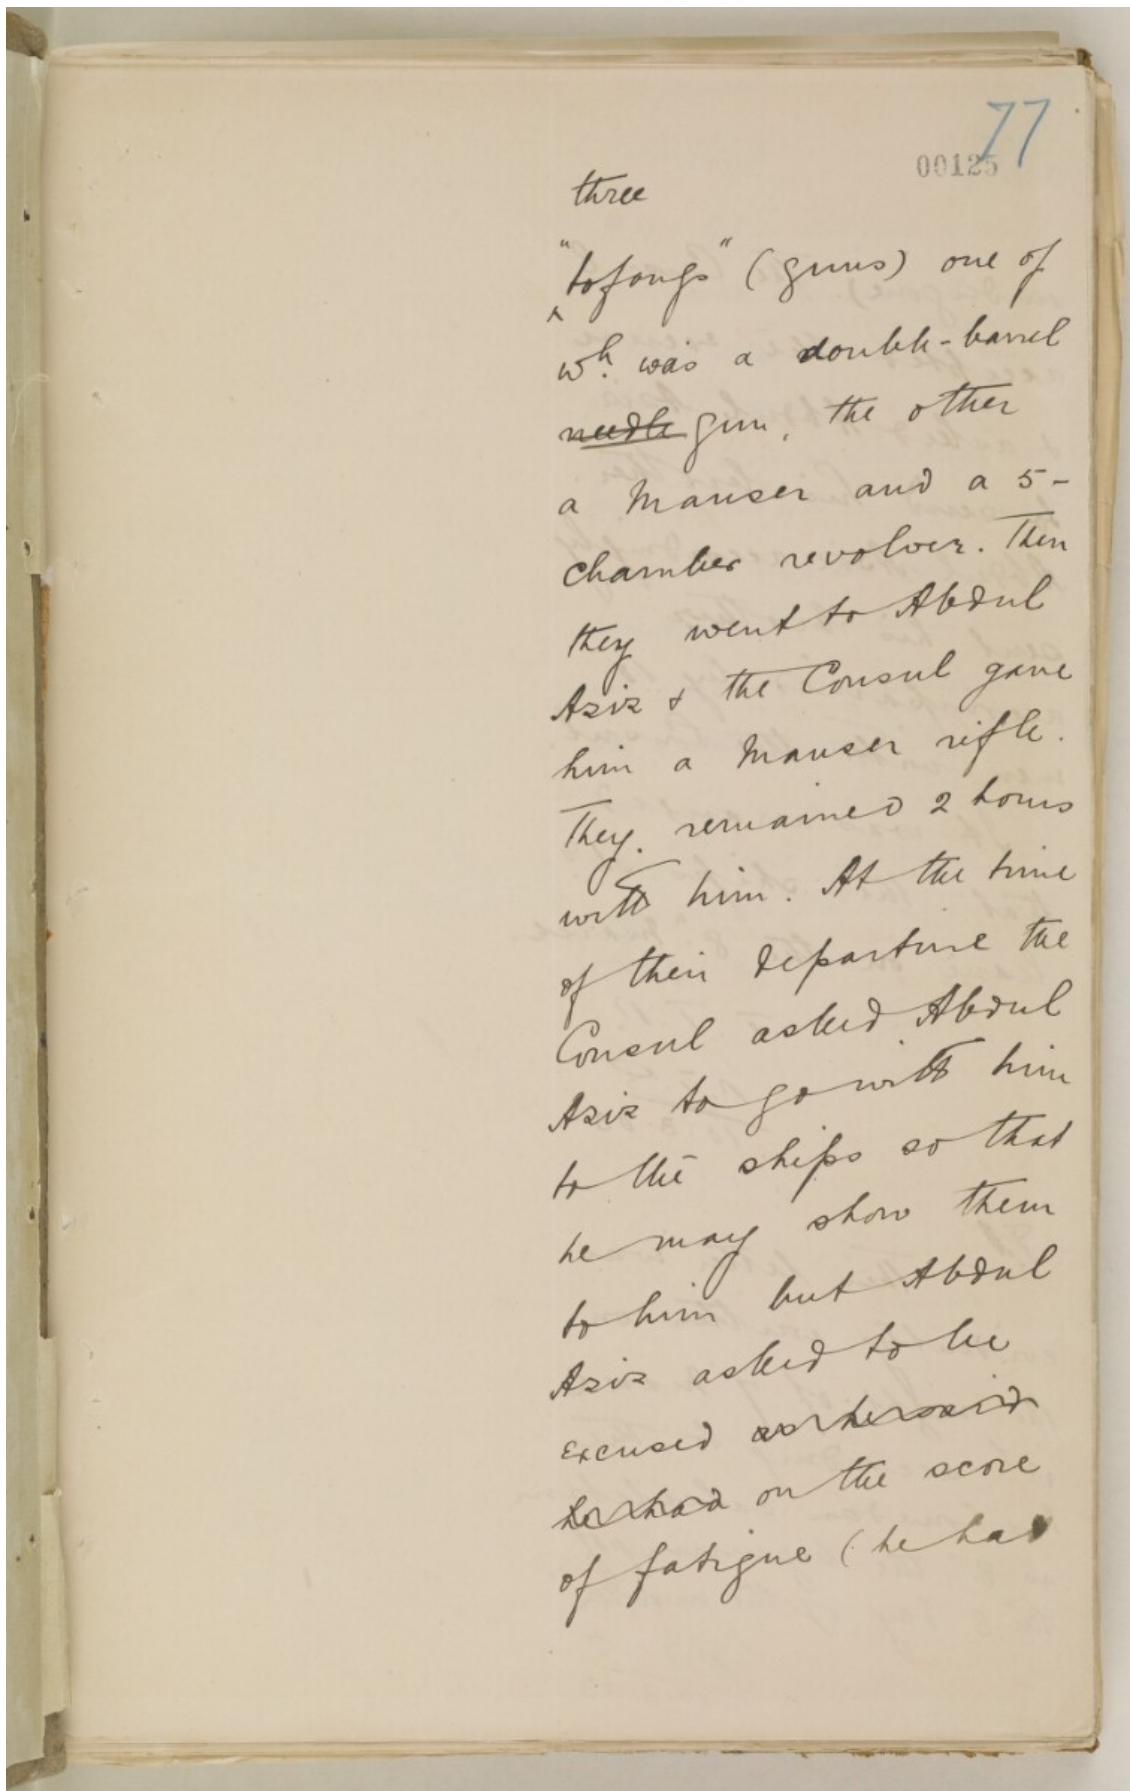 77
00125
three
"tofongs" (guns) one of
^
wh. was a double-barrel
needle gun, the other
a Mauser and a 5-
chamber revolver. Then
they went to Abdul
Aziz & the Consul gave
him a Mauser rifle.
They remained 2 hours
with him. At the time
of their departure the
Consul asked Abdul
Aziz to go with him
to the ships so that
he may show them
to him but Abdul
Aziz asked to be
excused as he said
he had on the score
of fatigue (he had